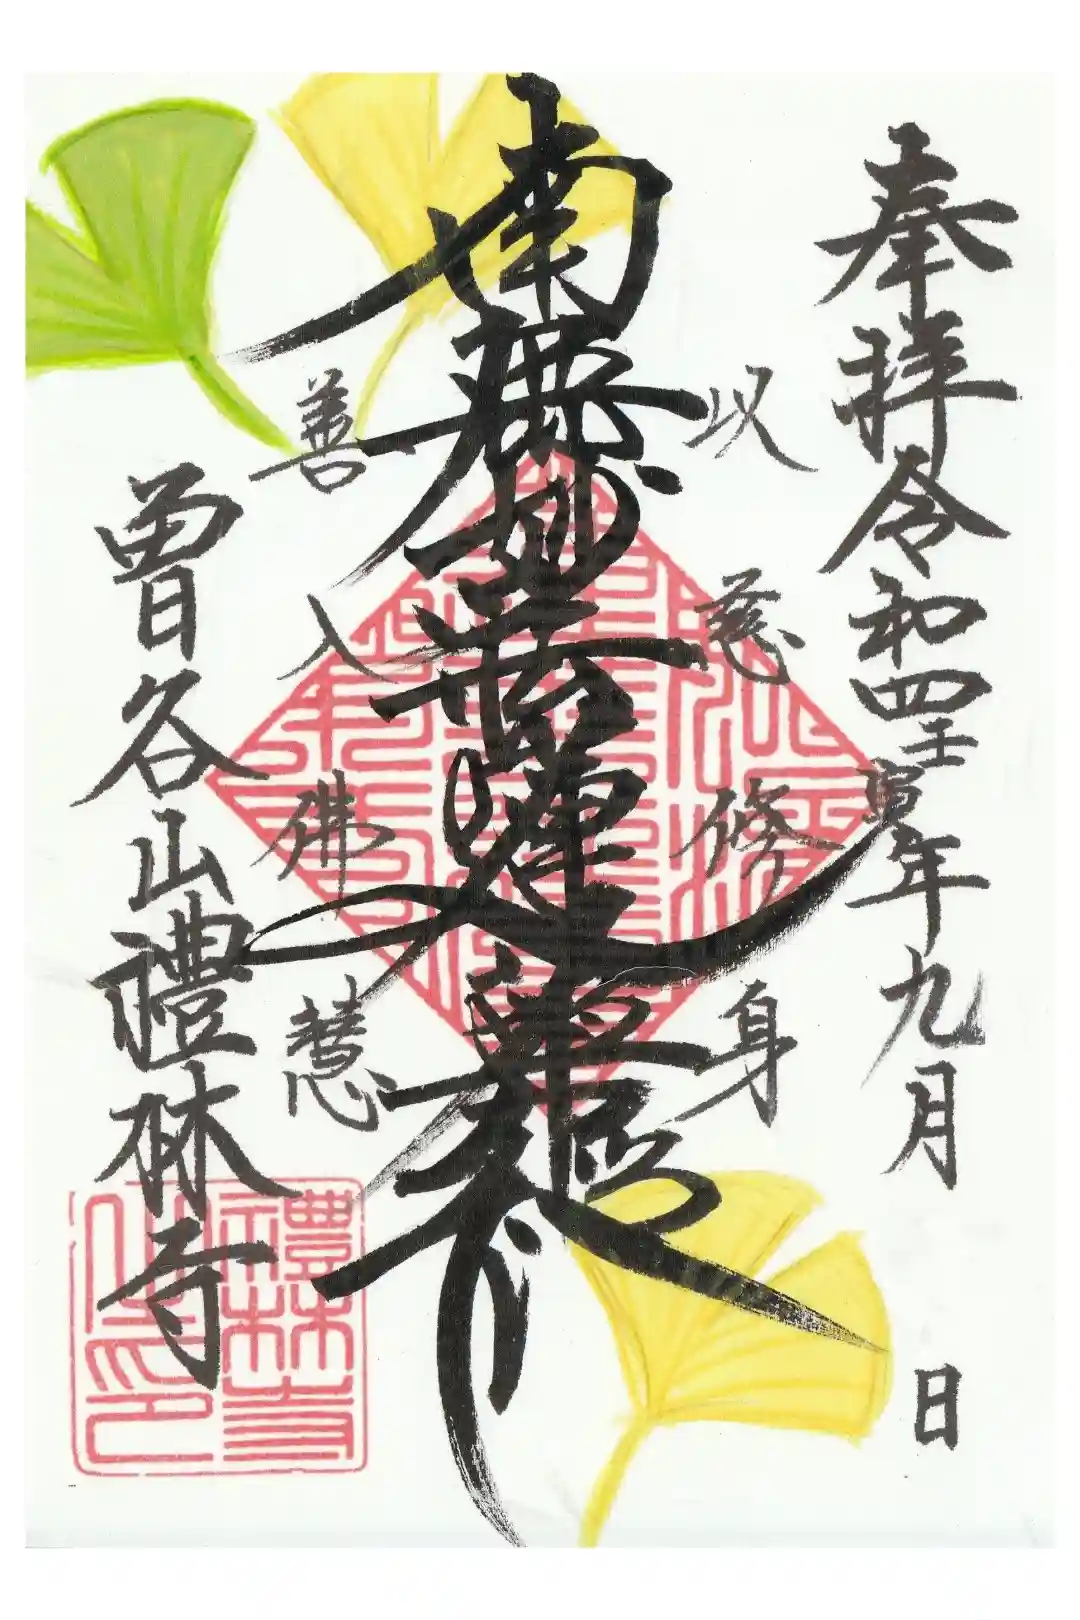 奉拝 令和四壬寅年九月 日
以慈修身
南無妙法蓮華経
善入佛慧
曽谷山禮林寺
禮林寺